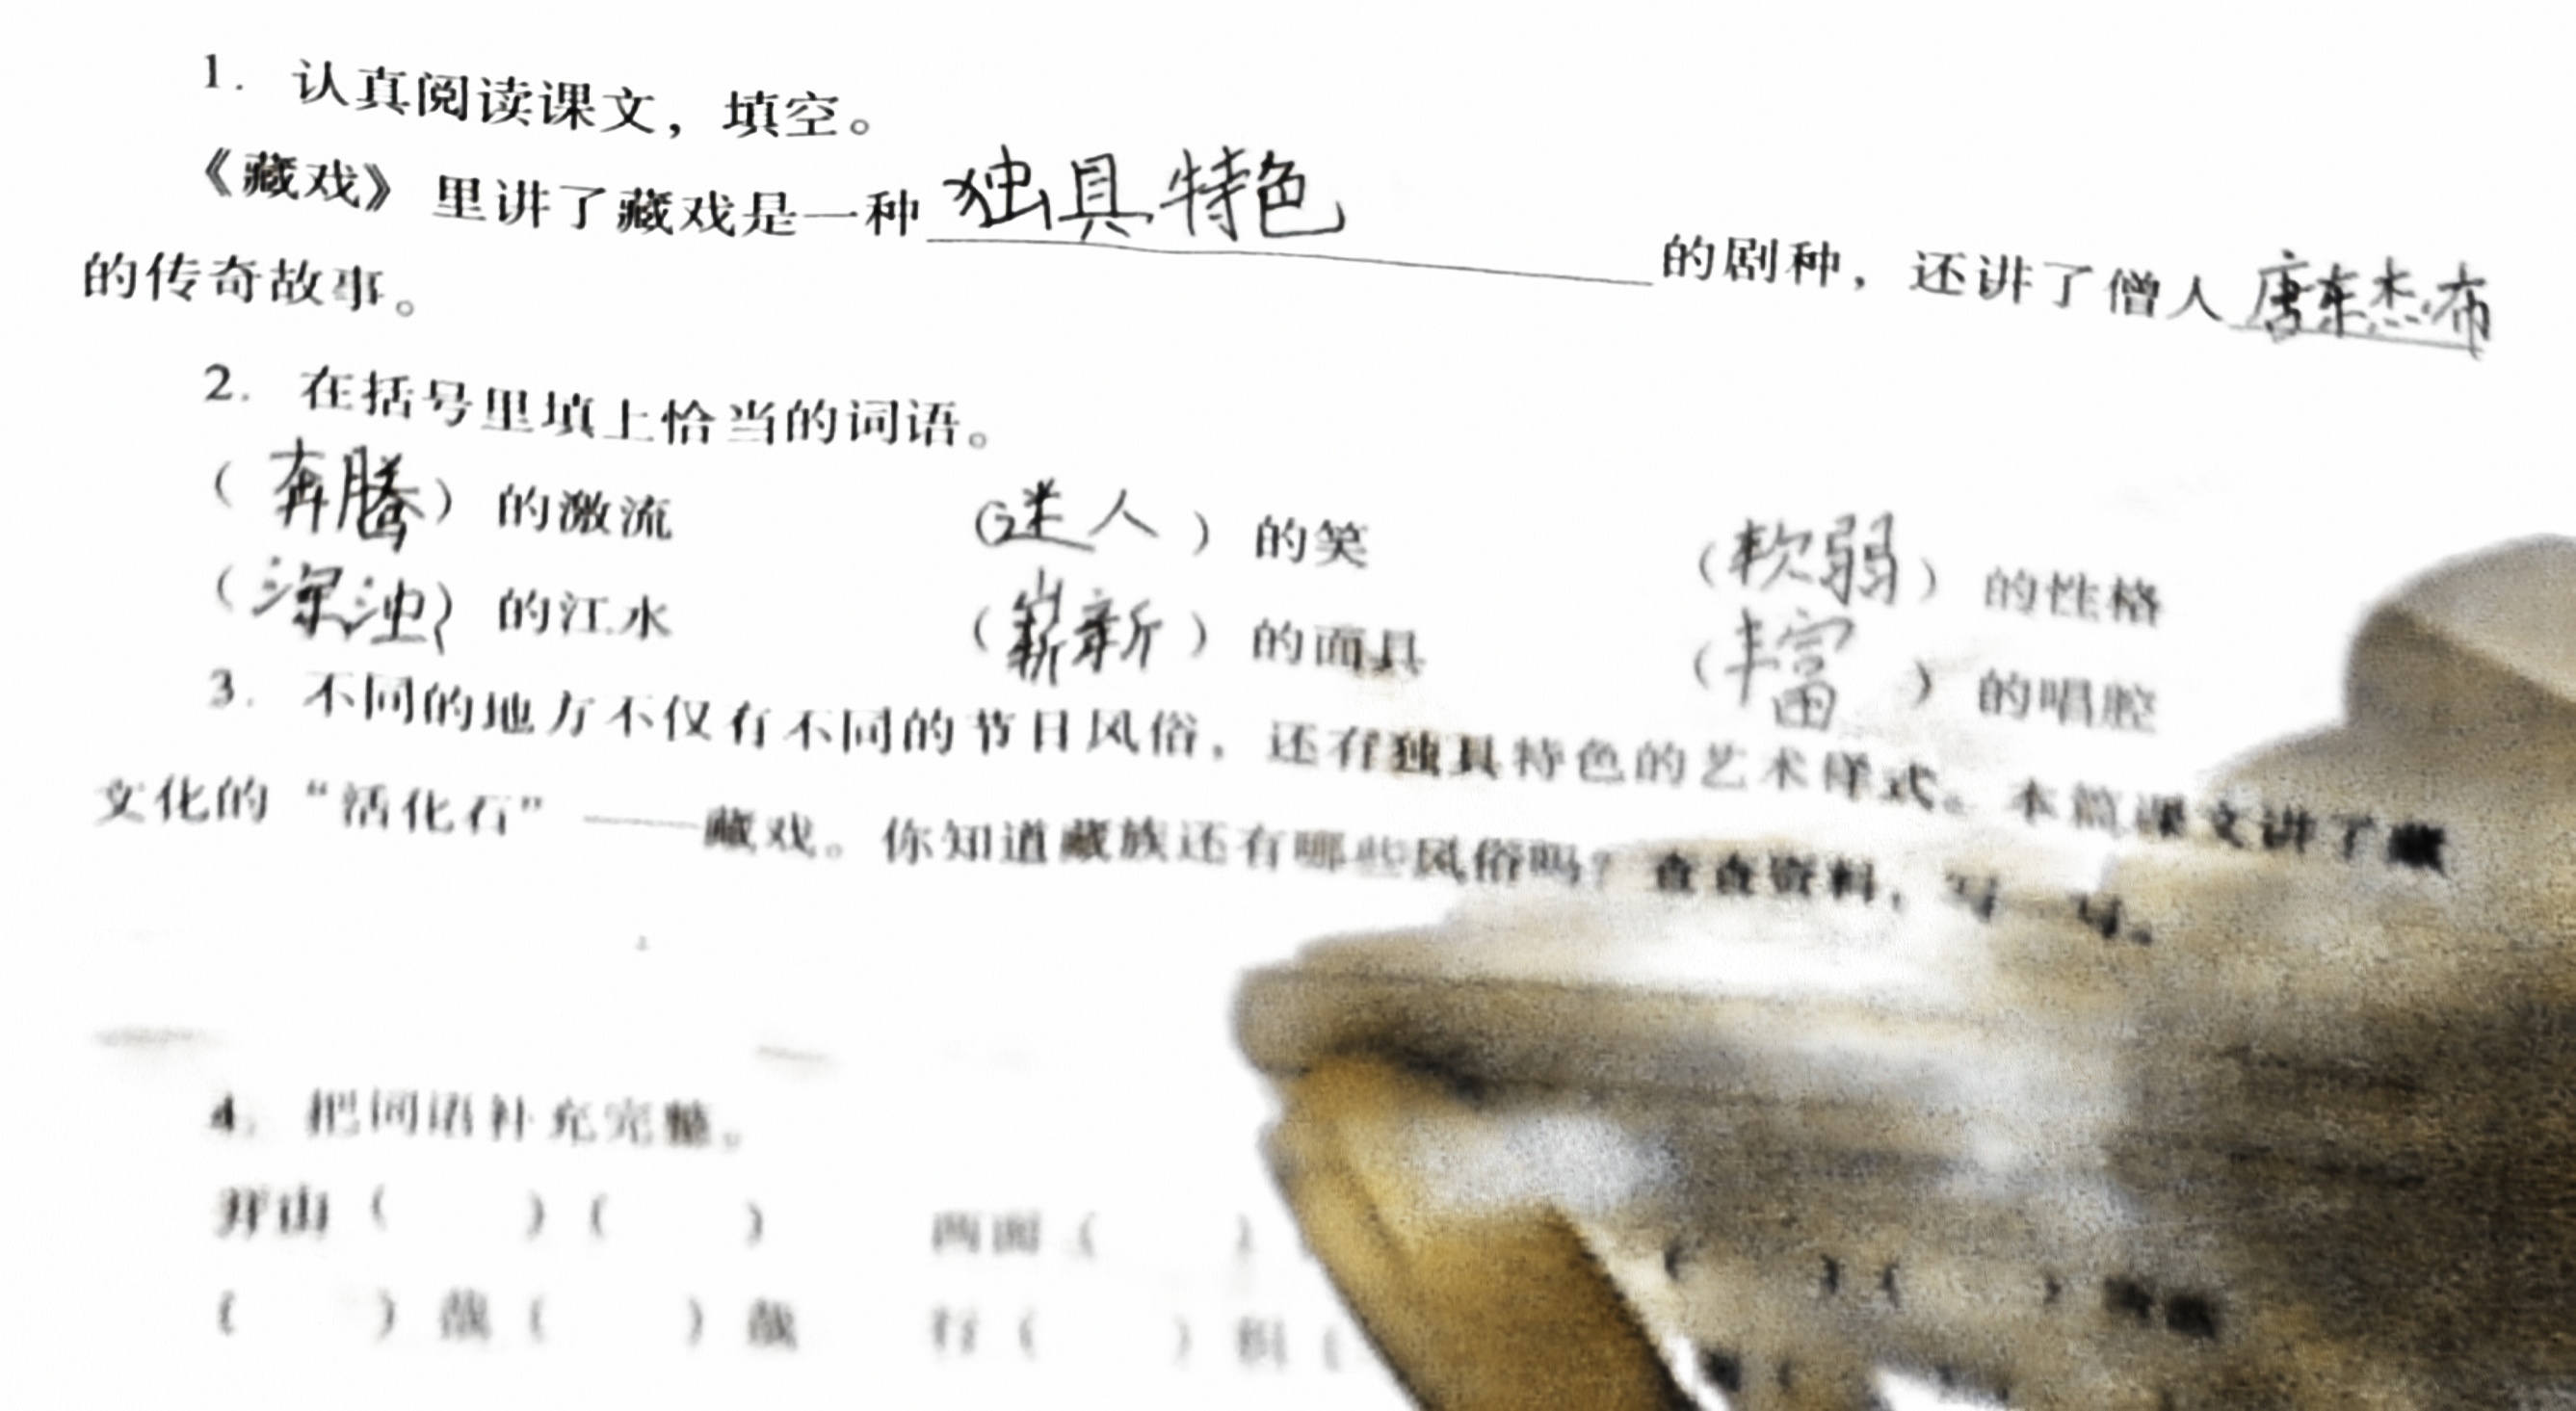 1. 认真阅读课文，填空。
《藏戏》里讲了藏戏是一种独具特色的剧种，还讲了僧人唐东杰布
的传奇故事。
2. 在括号里填上恰当的词语。
（奔腾）的激流 （迷人）的笑 （软弱）的性格
（浑浊）的江水 （崭新）的面具 （丰富）的唱腔
3. 不同的地方不仅有不同的节日风俗，还有独具特色的艺术样式。本篇课文讲了藏
文化的“活化石”——藏戏。你知道藏族还有哪些风俗吗？查查资料，写一写。
4. 把词语补充完整。
开山（ ）（ ） 两面（ ）
（ ）哉（ ）哉 行（ ）（
（ ）（ ）